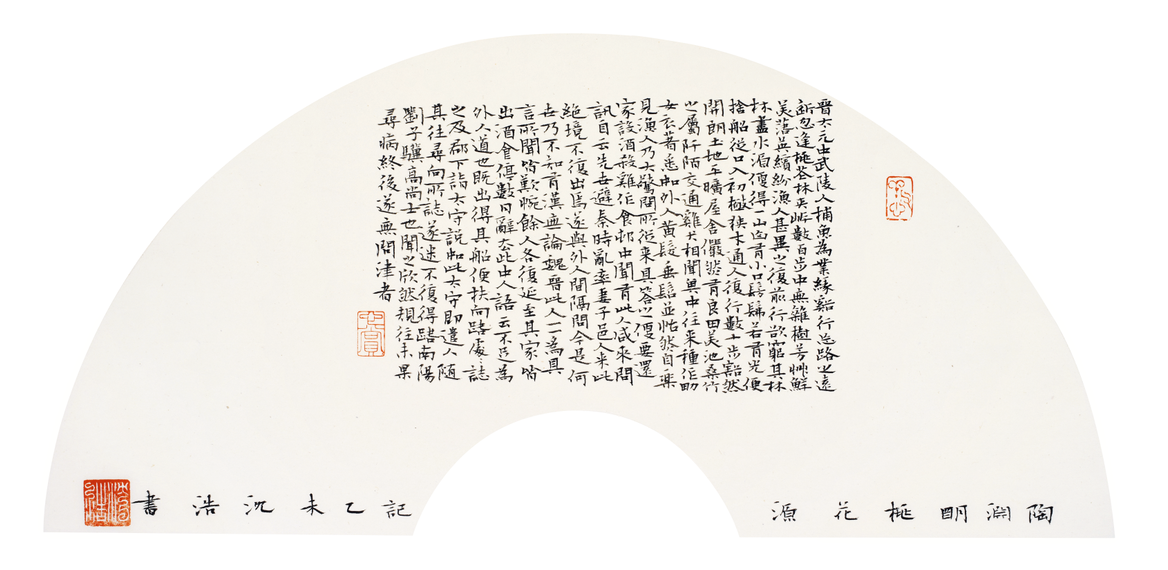 晉太元中武陵人捕魚為業緣谿行忘路之遠
近忽逢桃花林夾岸數百步中無雜樹芳艸鮮
美落英繽紛漁人甚異之復前行欲窮其林
林盡水源便得一山山有小口髣髴若有光便
捨船從口入初極狹才通人復行數十步豁然
開朗土地平曠屋舍儼然有良田美池桑竹
之屬阡陌交通雞犬相聞其中往來種作男
女衣著悉如外人黃髮垂髫並怡然自樂
見漁人乃大驚問所從來具答之便要還
家設酒殺雞作食邨中聞有此人咸來問
訊自云先世避秦時亂率妻子邑人來此
絕境不復出焉遂與外人間隔問今是何
世乃不知有漢無論魏晉此人一一為具
言所聞皆歎惋餘人各復延至其家皆
出酒食停數日辭去此中人語云不足為
外人道也既出得其船便扶向路處處誌
之及郡下詣太守說如此太守即遣人隨
其往尋向所誌遂迷不復得路南陽
劉子驥高尚士也聞之欣然規往未果
尋病終後遂無問津者
陶淵明桃花源
記乙未沈浩書